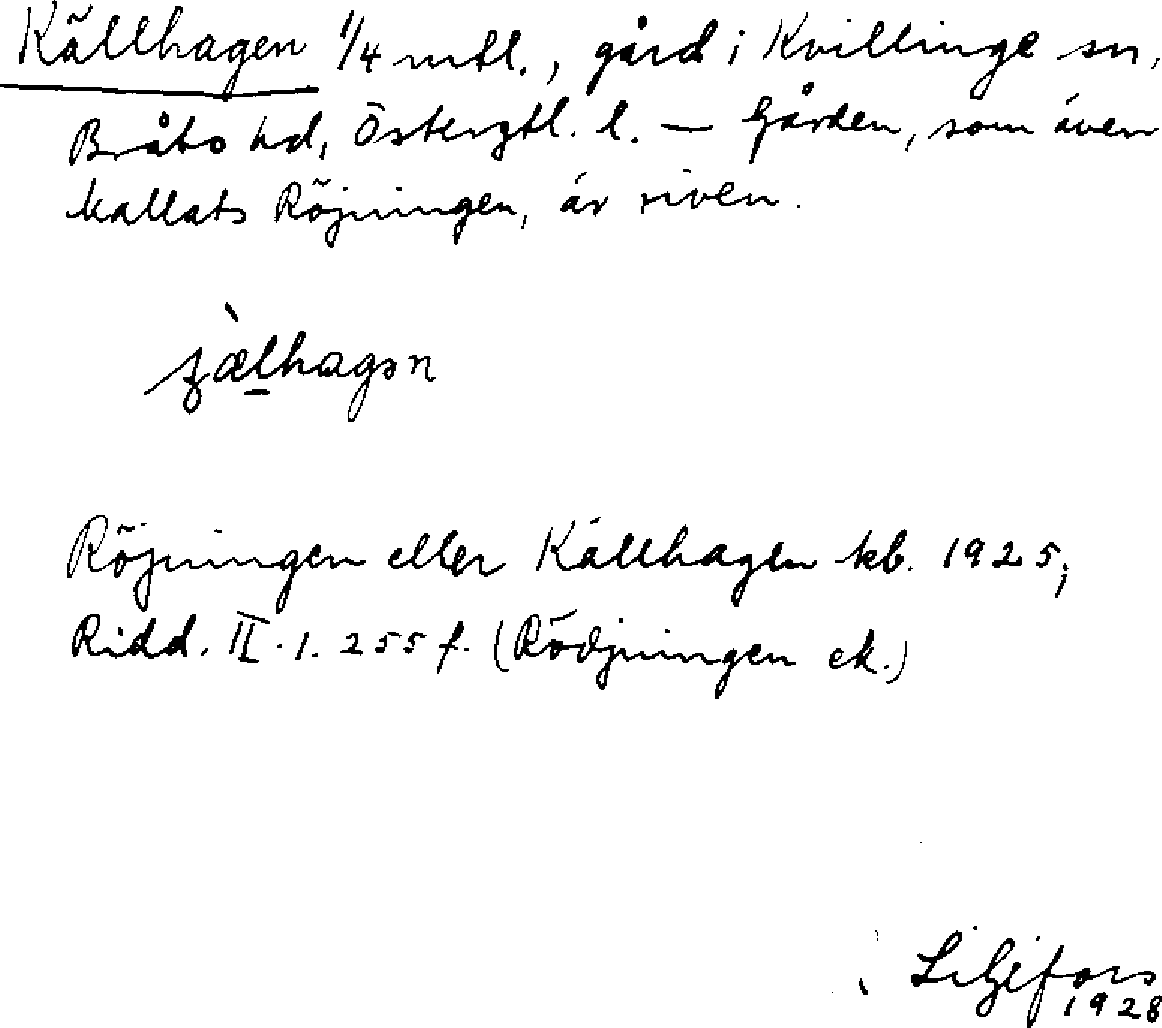 Källhagen 1/4 mtl., gård i Kvillinge sn,
Bråbo hd, Östergtl. l. — Gården, som även
kallats Röjningen, är riven.
Röjningen eller Källhagen kb. 1925;
Ridd. II. 1. 255 f. (Rödjningen ek.)
Liljefors
1928